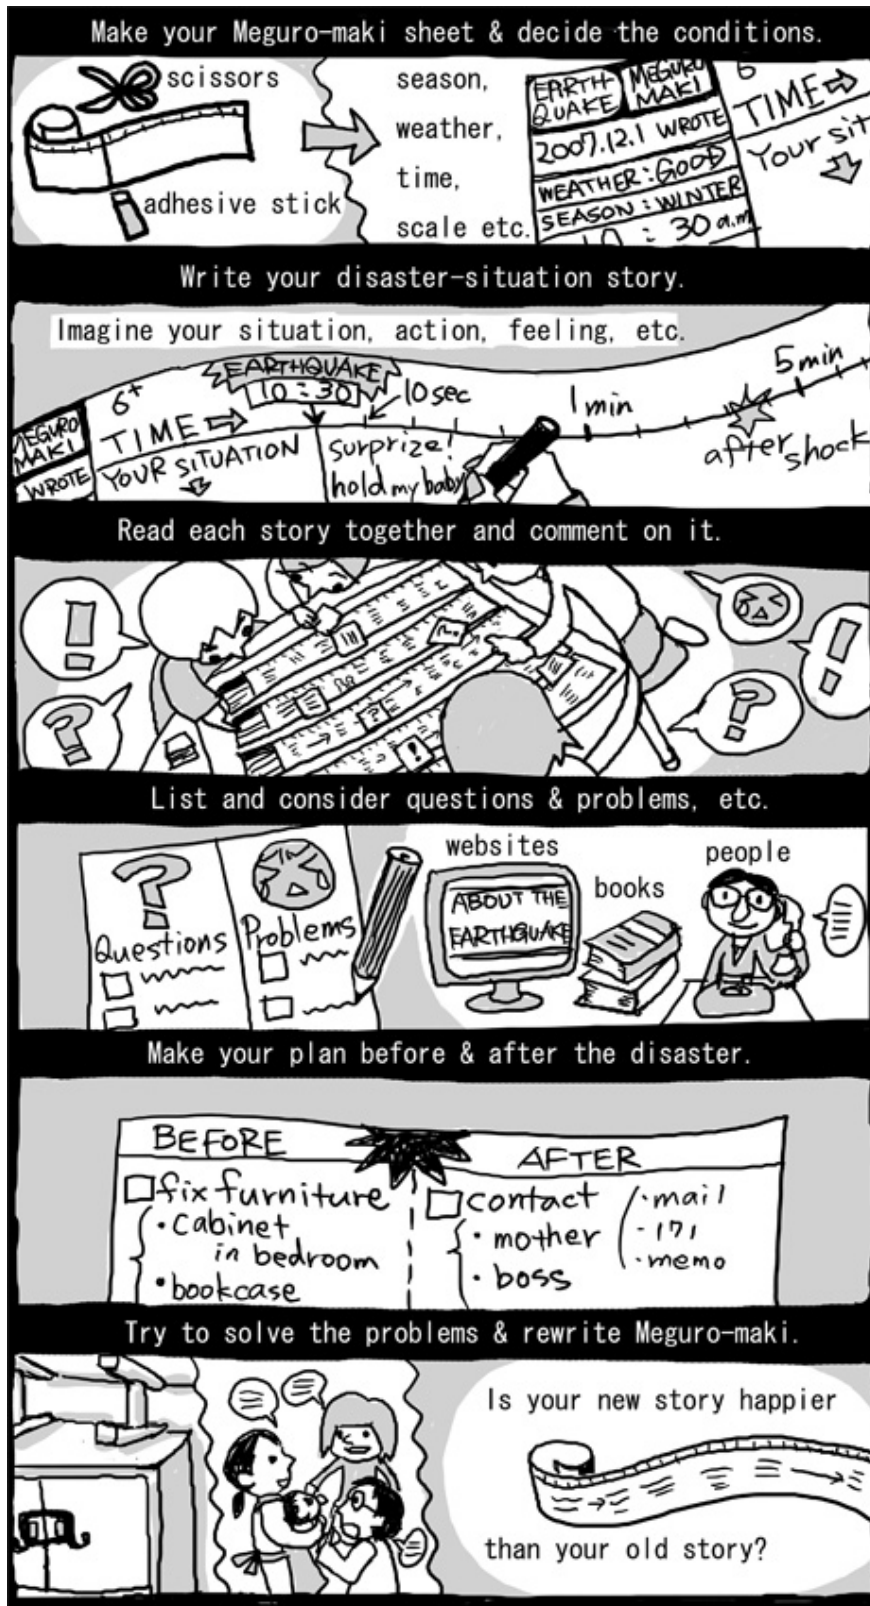 Make your Meguro-maki sheet & decide the conditions.
scissors
adhesive stick
season,
weather,
time,
scale etc.
EARTH-
QUAKE
MEGURO
MAKI
2007.12.1 WROTE
WEATHER:GOOD
SEASON:WINTER
10:30 a.m
6
TIME
Your sit
Write your disaster-situation story.
Imagine your situation, action, feeling, etc.
EARTHQUAKE
10:30
10sec
1min
5min
6+
MEGURO
MAKI
TIME
WROTE
YOUR SITUATION
surprize!
hold my baby
after shock
Read each story together and comment on it.
!
?
!
?
List and consider questions & problems, etc.
?
Questions
Problems
websites
ABOUT THE
EARTHQUAKE
books
people
Make your plan before & after the disaster.
BEFORE
fix furniture
・cabinet
in bedroom
・bookcase
AFTER
contact
・mother
・boss
・mail
・171
・memo
Try to solve the problems & rewrite Meguro-maki.
Is your new story happier
than your old story?